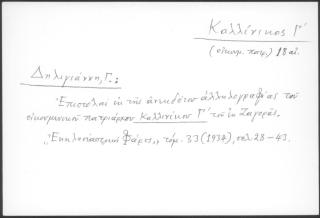 Καλλίνικος Γ΄
(οἰκουμ. πατρ.) 18 αἰ.
Δηλιγιάννη, Γ.:
Ἐπιστολαὶ ἐκ τῆς ἀνεκδότου ἀλληλογραφίας τοῦ
οἰκουμενικοῦ πατριάρχου Καλλινίκου Γ΄ τοῦ ἐκ Ζαγορᾶς.
„Ἐκκλησιαστικὸς Φάρος„ τόμ. 33 (1934), σελ. 28-43.